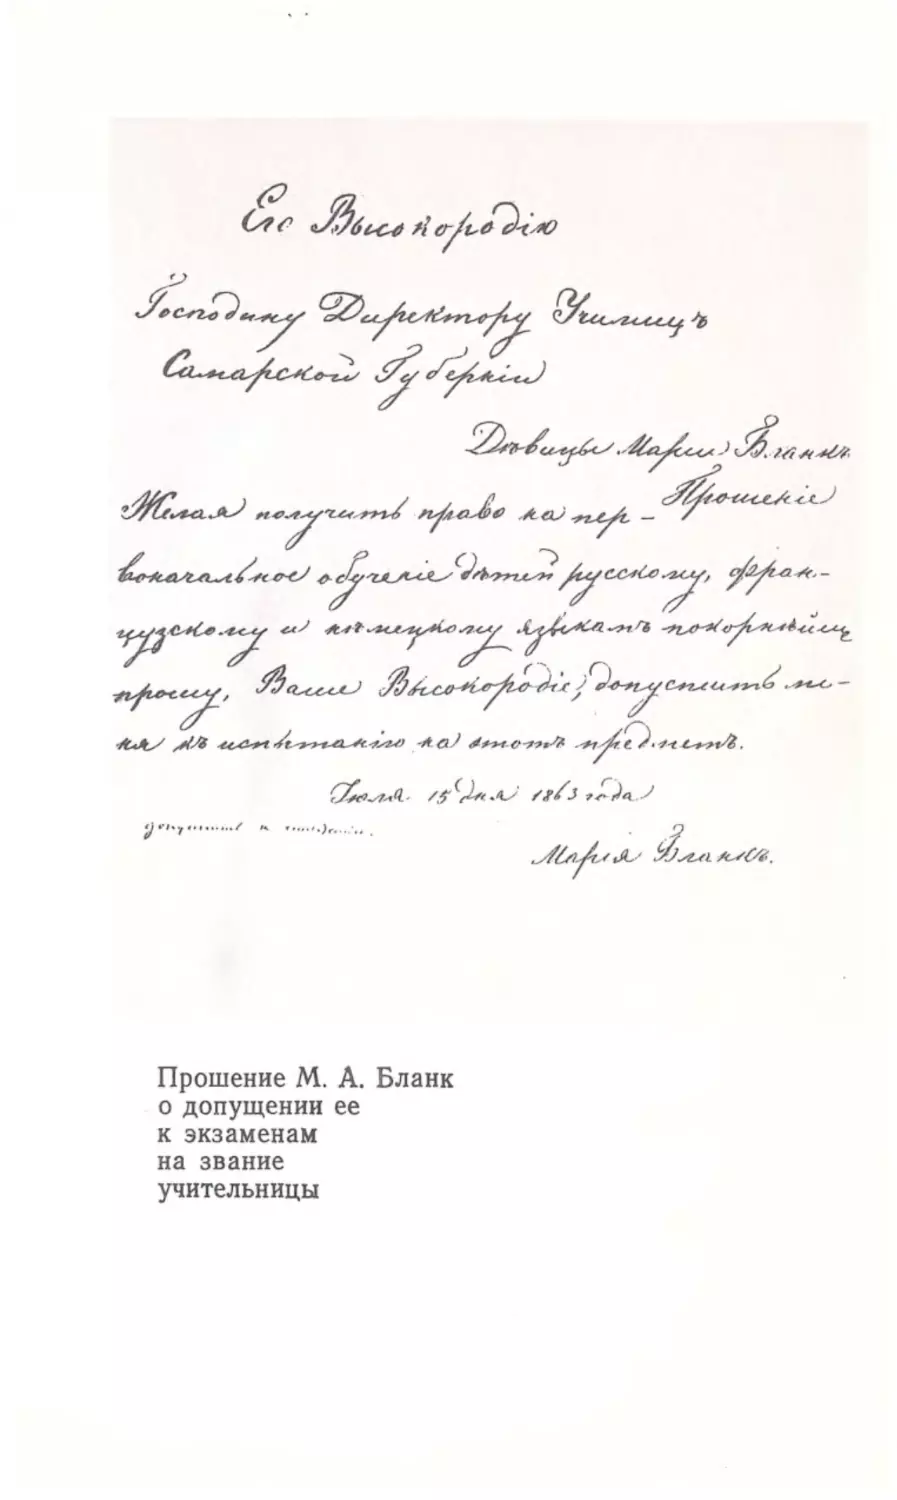 Его Высокородію
Господину Директору Училищъ
Самарской Губерніи
Дѣвицы Маріи Бланкъ
Прошеніе
Желая получить право на пер-
воначальное обученіе дѣтей русскому, фран-
цузскому и нѣмецкому языкамъ покорнѣйше
прошу, Ваше Высокородіе, допустить ме-
ня къ испытанію на этотъ предметъ.
Іюля 15 дня 1863 года
допустить к
Марія Бланкъ.
Прошение М. А. Бланк
о допущении ее
к экзаменам
на звание
учительницы